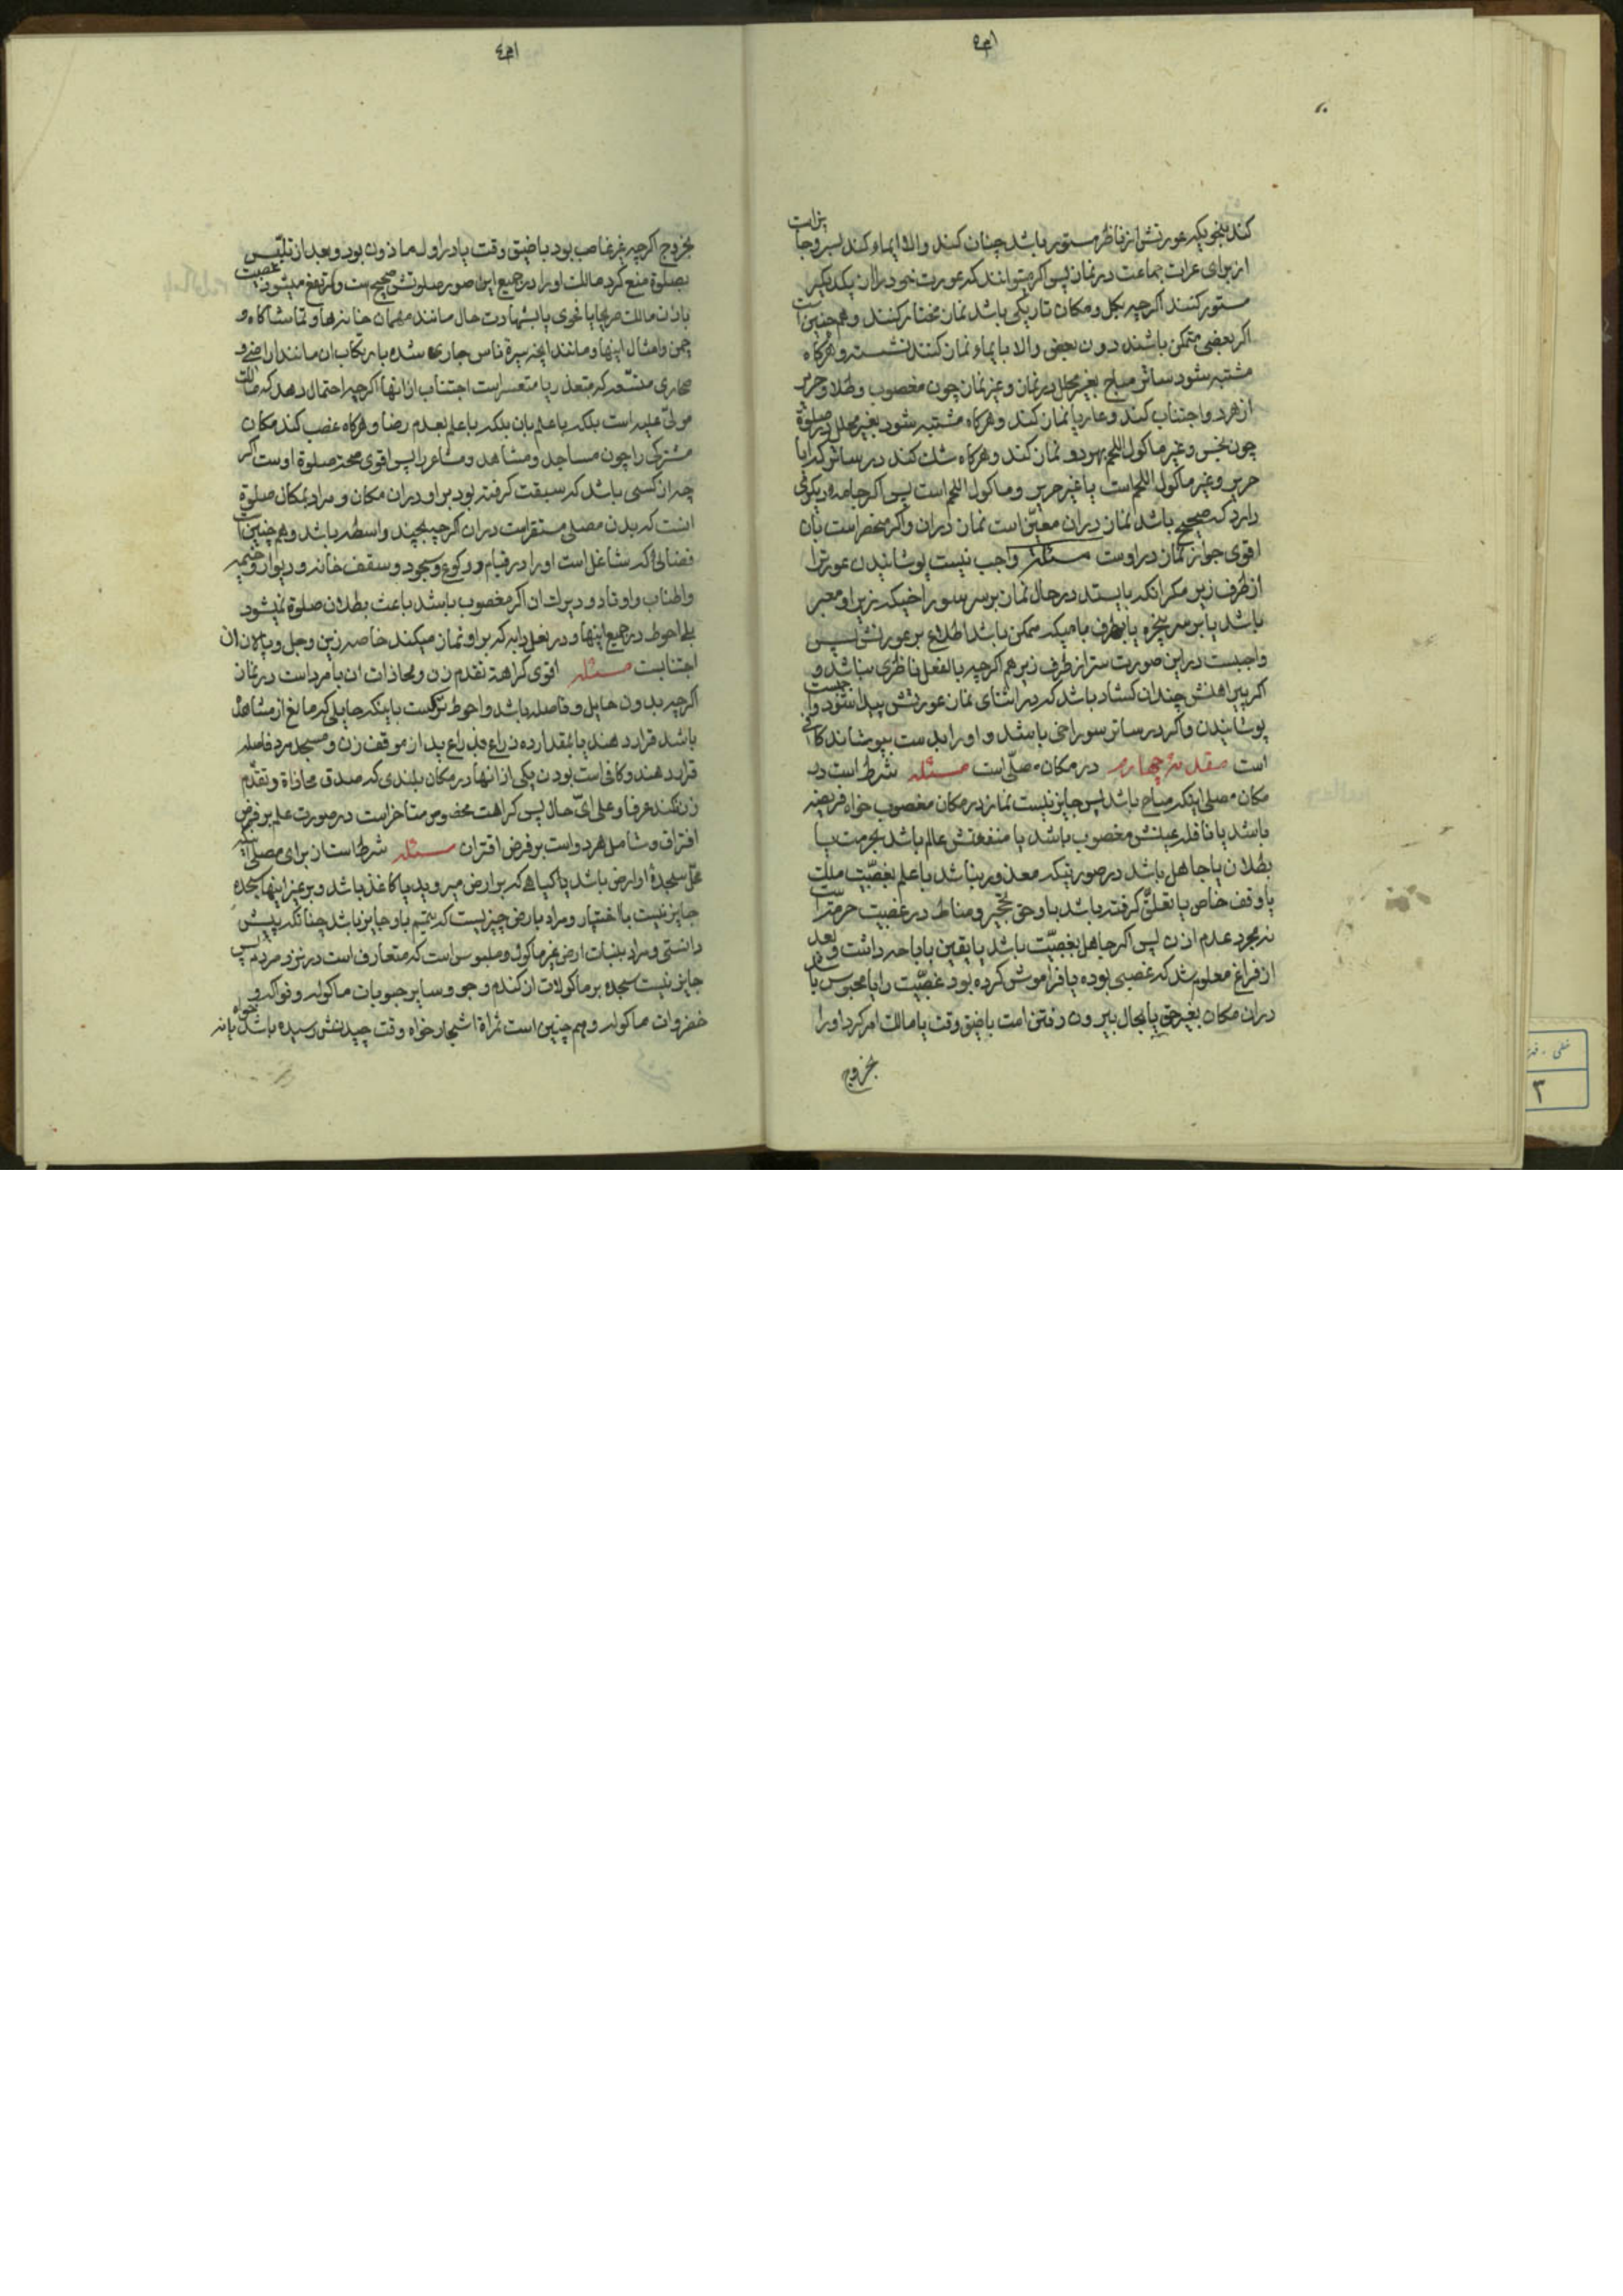 کند بنحویکه عورتش از ناظر مستور باشد چنان کند والا ایماء کند بسر و جایز است
از برای عرات جماعت در نماز پس اگر میتوانند که عورت خود را از یکدیگر
مستور کنند اگرچه بکل و مکان تاریکی باشد نماز مختار کنند و همچنین است
اگر بعضی متمکن باشند دون بعض والا بایماء نماز کنند نشسته و هرگاه
مشتبه شود ساتر مباح بغیر محلل در نماز و غیر نماز چون مغصوب و طلا و حریر
از هر دو اجتناب کند و عاریا نماز کند و هرگاه مشتبه شود بغیر محلل در صلوة
چون نجس و غیر ماکول اللحم بهر دو نماز کند و هرگاه شک کند در ساتر که ایا
حریر و غیر ماکول اللحم است یا غیر حریر و ماکول اللحم است پس اگر جامه دیگری
دارد که صحیح باشد نماز در ان معین است نماز در ان و اگر منحصر است بان
اقوی جواز نماز در اوست مسئلة واجب نیست پوشانیدن عورت را
از طرف زیر مگر انکه بایستد در حال نماز بر سر سوراخیکه زیر او معبر
باشد یا بر سر پنجره یا بطرف بامیکه ممکن باشد اطلاع بر عورتش پس
واجبست در این صورت ستر از طرف زیر هم اگرچه بالفعل ناظری نباشد و
اگر پیراهنش چندان گشاد باشد که در اثنای نماز عورتش پیدا شود واجبست
پوشانیدن و اگر در ساتر سوراخی باشد و او را بدست بپوشاند کافی
است مقدمة چهارم در مکان مصلّی است مسئله شرط است در
مکان مصلی اینکه مباح باشد پس جایز نیست نماز در مکان مغصوب خواه فریضه
باشد یا نافله عینش مغصوب باشد یا منفعتش عالم باشد بحرمت یا
بطلان یا جاهل باشد در صورتیکه معذور نباشد با علم بغصبیّت ملک
یا وقف خاص یا تعلق گرفته باشد باو حق تحجیر و مناط در غصبیت حرمتست
نه مجرد عدم اذن پس اگر جاهل بغصبیّت باشد یا یقین باباحه داشت و بعد
از فراغ معلوم شد که غصبی بوده یا فراموش کرده بود غصبیّت را یا محبوس باشد
در ان مکان بغیر حق یا بحال بیرون رفتن است با ضیق وقت یا مالک امر کرد او را
بخروج
بخروج اگرچه غیر غاصب بود با ضیق وقت یا در اول ماذون بود و بعد از تلبّس
بصلوة منع کرد مالک او را در جمیع این صور صلوتش صحیح است و مرتفع میشود غصبیت
باذن مالک صریحا یا فحوی یا بشهادت حال مانند مهمان خانه‌ها و تماشاگاه و
چمن و امثال اینها و مانند انچه سیرة ناس جاری شده بارتکاب ان مانند اراضی و
صحاری متسعه که متعذر یا متعسر است اجتناب از انها اگرچه احتمال دهد که مالک
مولّی علیه است بلکه با علم بان بلکه با علم بعدم رضا و هرگاه غصب کند مکان
مشترکی را چون مساجد و مشاهد و مشاعر را پس اقوی صحة صلوة اوست اگر
چه ان کسی باشد که سبقت گرفته بود بر او در ان مکان و مراد بمکان صلوة
انست که بدن مصلی مستقر است در ان اگرچه بچند واسطه باشد و همچنین است
فضائی که شاغل است او را در قیام و رکوع و سجود و سقف خانه و دیوار و خیمه
و اطناب و اوتاد و دیرک ان اگر مغصوب باشد باعث بطلان صلوة نمیشود
بلی احوط در جمیع اینها و در نعل دابه که بر او نماز میکند خاصه زین و جل و پالان ان
اجتنابست مسئله اقوی کراهة تقدم زن و محاذات ان با مرد است در نماز
اگرچه بدون حایل و فاصله باشد و احوط ترکست یا اینکه حایلی که مانع از مشاهده
باشد قرار دهند یا بمقدار ده ذراع بذراع ید از موقف زن و مسجد مرد فاصله
قرار دهند و کافی است بودن یکی از انها در مکان بلندی که صدق محاذاة و تقدّم
زن نکند عرفا و علی ایّ حال پس کراهت مخصوص متاخر است در صورت علم بر فرض
افتراق و شامل هر دو است بر فرض اقتران مسئله شرط است از برای مصلی اینکه
محل سجدۀ او ارض باشد یا گیاهی که بر ارض میروید یا کاغذ باشد و بر غیر اینها سجده
جایز نیست با اختیار و مراد بارض چیزیست که تیمم باو جایز باشد چنانکه پیش
دانستی و مراد بنبات ارض غیر ماکول و ملبوس است که متعارف است در نزد مردم پس
جایز نیست سجده بر ماکولات از گندم و جو و سایر حبوبات ماکوله و فواکه و
خضروات ماکوله و همچنین است ثمراة اشجار خواه وقت چیدنش رسیده باشد یا نه